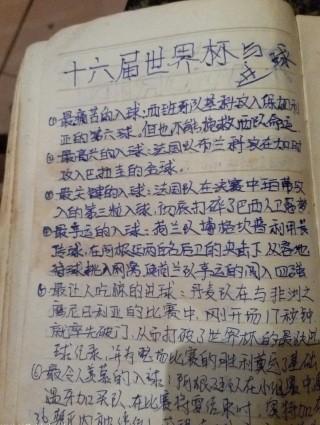 十六届世界杯与足球
①最痛苦的入球:西班牙队基科攻入保加利
亚的第六球,但也不能挽救西队命运
②最高兴的入球:法国队布兰科攻在加时
攻入巴拉圭的金球.
③最关键的入球:法国队在决赛中
入的第三粒入球,彻底打碎了巴西人卫冕梦
④最幸运的入球:荷兰队博格坎普利用长
传球,在阿根廷两名后卫的夹击下从容地
将球挑入网窝,使荷兰队幸运的闯入四强
⑤最让人吃惊的进球:丹麦队在与非洲之
鹰尼日利亚的比赛中,刚开场17秒钟
就率先破门,从而打破了世界杯的最快进
球纪录,并为整场比赛的胜利奠定了基础
⑥最令人羡慕的入球:阿根廷队在小组赛中
遇牙加买队,在比赛将要结束时,